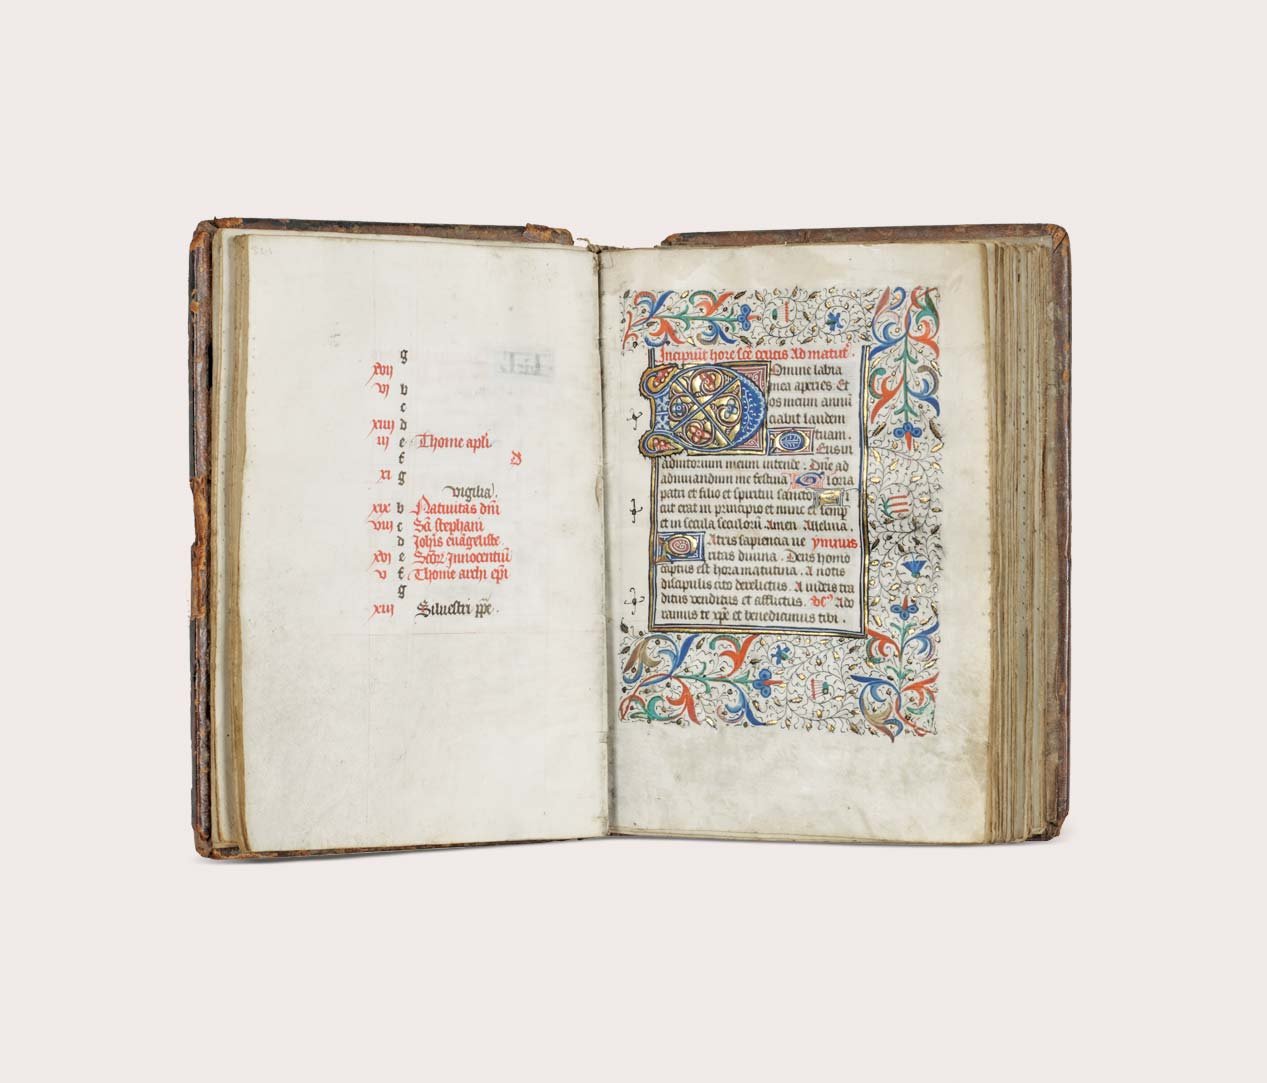 g
xvij
vj b
c
xiiij d
iij e Thome apl'i
f
xj g
vigilia.
xix b Natiuitas dñi
viij c Sci̅ stephani
d Joh'is euāgeliste
xvj e Sctõ2 Innocentiū
v f Thome archi ep̄i
g
xiij Siluestri pp̄e.
Incipiũt hore sc̄e crucis Ad matut'.
Domine labia
mea aperies. Et
os meum annū
ciabit laudem
tuam.
Deus in
adiutorium meum intende. Dn̄e ad
adiuuandum me festina. Gloria
patri et filio et spiritui sancto. Si
cut erat in principio et nunc et semp̄
et in secula seculorū. Amen. Alleluia.
Patris sapiencia ue ymnus
ritas diuina. Deus homo
captus est hora matutina. A notis
discipulis cito derelictus. A iudeis tra
ditus venditus et afflictus. Ado
ramus te xp̄e et benedicimus tibi.